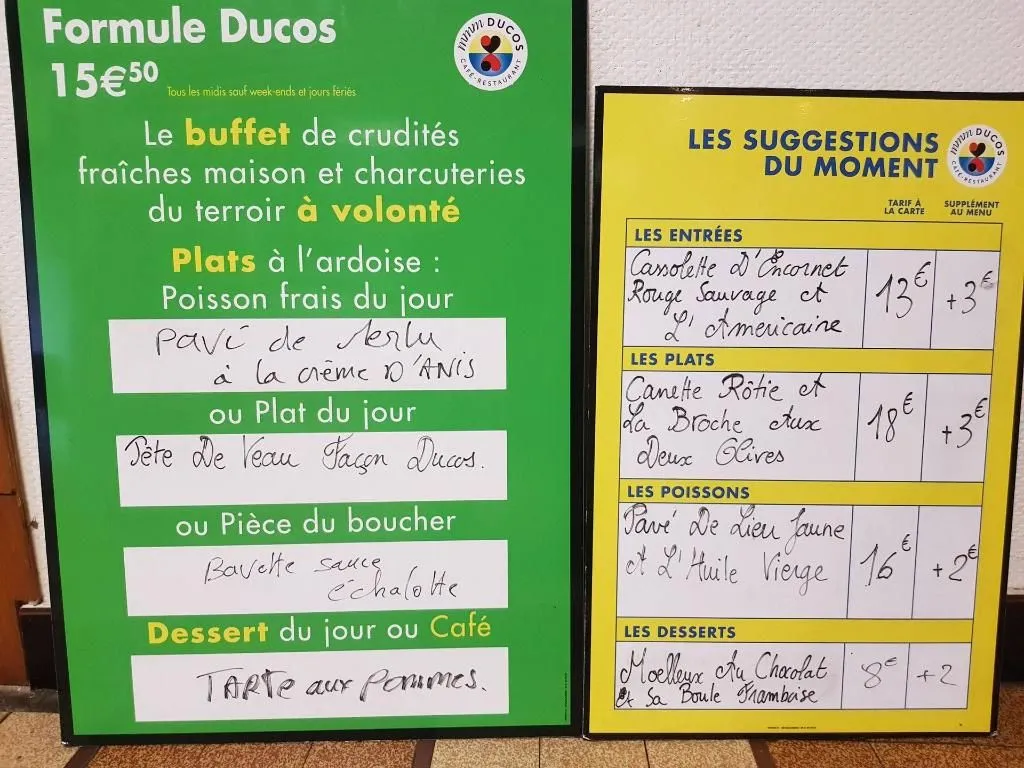 Formule Ducos
15€50 Tous les midis sauf week-ends et jours fériés
mmm DUCOS
CAFÉ-RESTAURANT
Le buffet de crudités
fraîches maison et charcuteries
du terroir à volonté
Plats à l'ardoise :
Poisson frais du jour
Pavé de Merlu
à la crème D'ANIS
ou Plat du jour
Tête De Veau Façon Ducos.
ou Pièce du boucher
Bavette sauce
échalotte
Dessert du jour ou Café
TARTe aux Pommes.
LES SUGGESTIONS
DU MOMENT
mmm DUCOS
CAFÉ-RESTAURANT
TARIF À
LA CARTE
SUPPLÉMENT
AU MENU
LES ENTRÉES
Cassolette D'Encornet
Rouge Sauvage et
L'Americaine
13€ +3€
LES PLATS
Canette Rôtie et
La Broche Aux
Deux Olives
18€ +3€
LES POISSONS
Pavé De Lieu Jaune
et L'Huile Vierge
16€ +2€
LES DESSERTS
Moelleux Au Chocolat
et Sa Boule Framboise
8€ +2